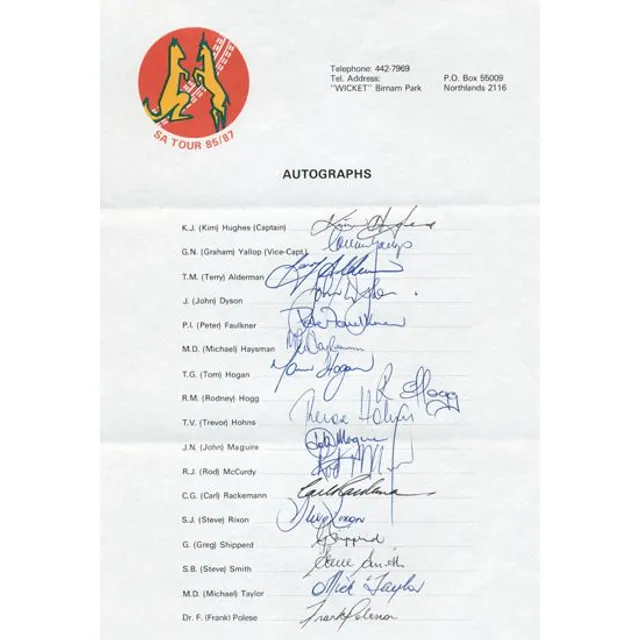 SA TOUR 85/87
Telephone: 442-7969
Tel. Address: P.O. Box 55009
"WICKET" Birnam Park Northlands 2116
AUTOGRAPHS
K.J. (Kim) Hughes (Captain) Kim Hughes
G.N. (Graham) Yallop (Vice-Capt.) Graham Yallop
T.M. (Terry) Alderman Terry Alderman
J. (John) Dyson John Dyson
P.I. (Peter) Faulkner Peter Faulkner
M.D. (Michael) Haysman
T.G. (Tom) Hogan Tom Hogan
R.M. (Rodney) Hogg R Hogg
T.V. (Trevor) Hohns Trevor Hohns
J.N. (John) Maguire John Maguire
R.J. (Rod) McCurdy Rod
C.G. (Carl) Rackemann Carl Rackemann
S.J. (Steve) Rixon Steve Rixon
G. (Greg) Shipperd G Shipperd
S.B. (Steve) Smith Steve Smith
M.D. (Michael) Taylor Mick Taylor
Dr. F. (Frank) Polese Frank Polese